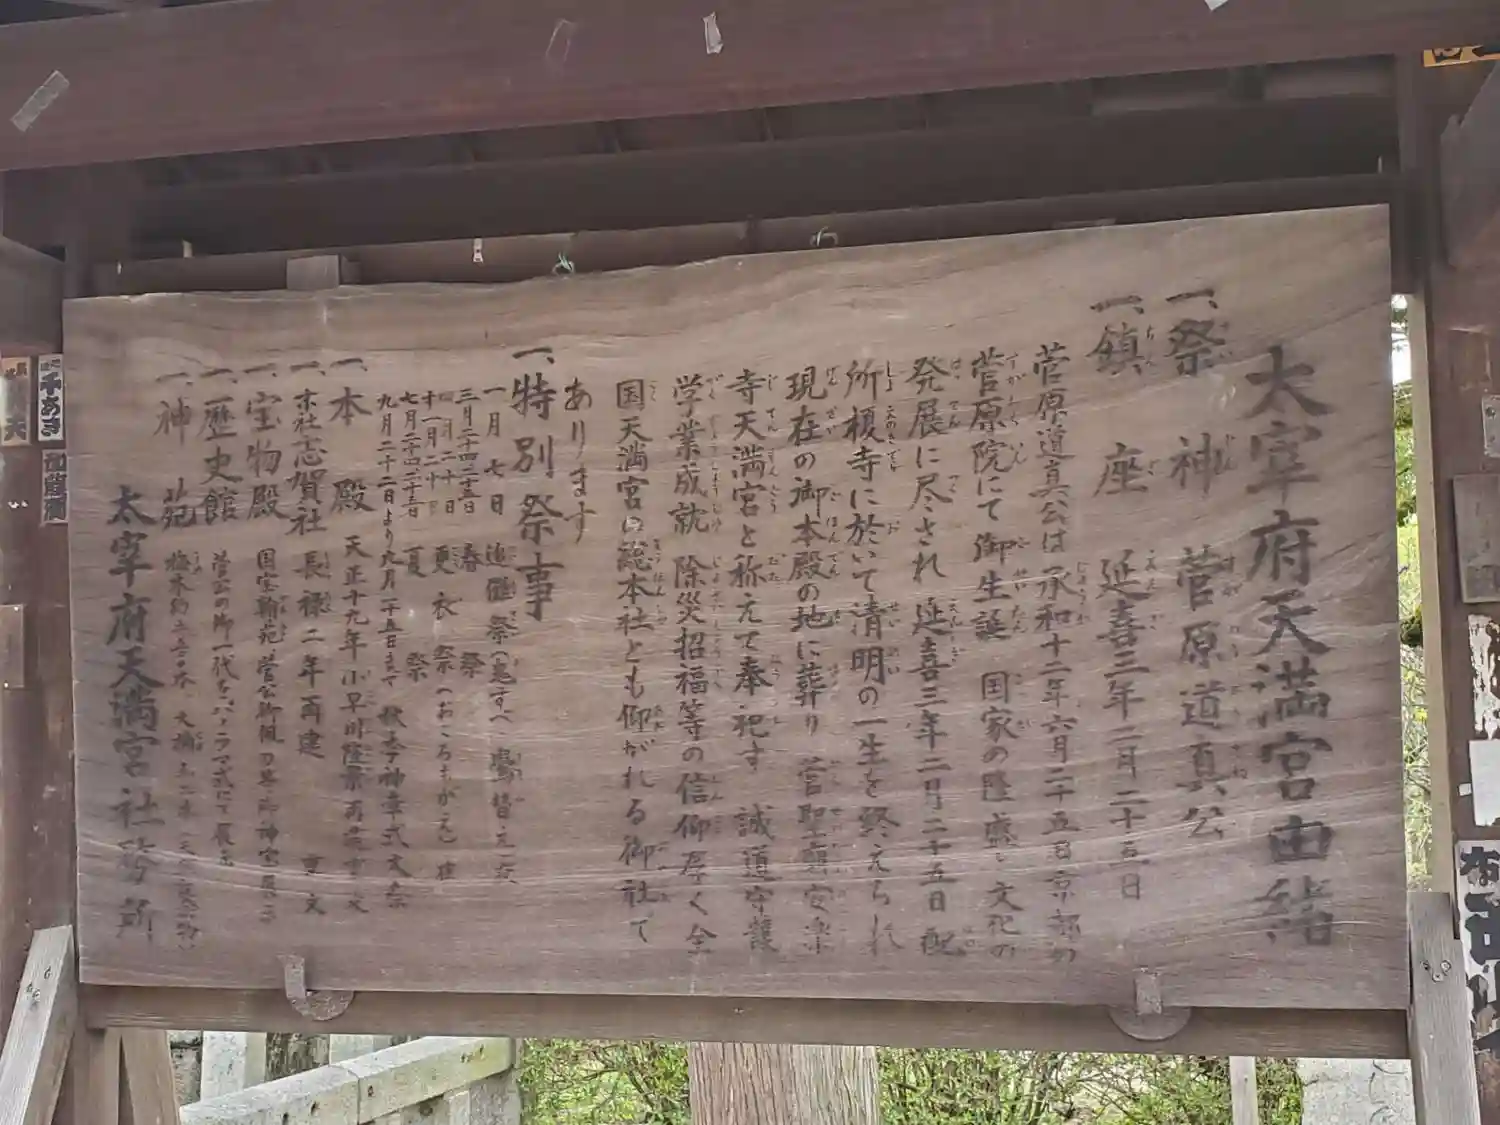 太宰府天満宮由緒
一、祭神 菅原道真公
一、鎮座 延喜三年二月二十五日
菅原道真公は承和十二年六月二十五日京都の
菅原院にて御生誕 国家の隆盛と文化の
発展に尽され 延喜三年二月二十五日 配
所榎寺に於いて清明の一生を終えられ
現在の御本殿の地に葬り 菅聖廟安楽
寺天満宮と称えて奉祀す 誠道守護
学業成就 除災招福等の信仰厚く全
国天満宮の総本社とも仰がれる御社で
あります
一、特別祭事
一月 七日 追儺祭(鬼すべ 鷽替え
三月二十四二十五日 春祭
四月二十日
十一月二十日 更衣祭(おころもがえ)
七月二十四二十五日 夏祭
九月二十二日より九月二十五日まで 秋季神幸式大祭
一、本殿 天正十九年 小早川隆景再建 重文
一、末社志賀社 長禄二年再建 重文
一、宝物殿 国宝翰苑 菅公御佩刀
一、歴史館 菅公の御一代をパノラマ式にて展示
一、神苑 梅木
太宰府天満宮社務所